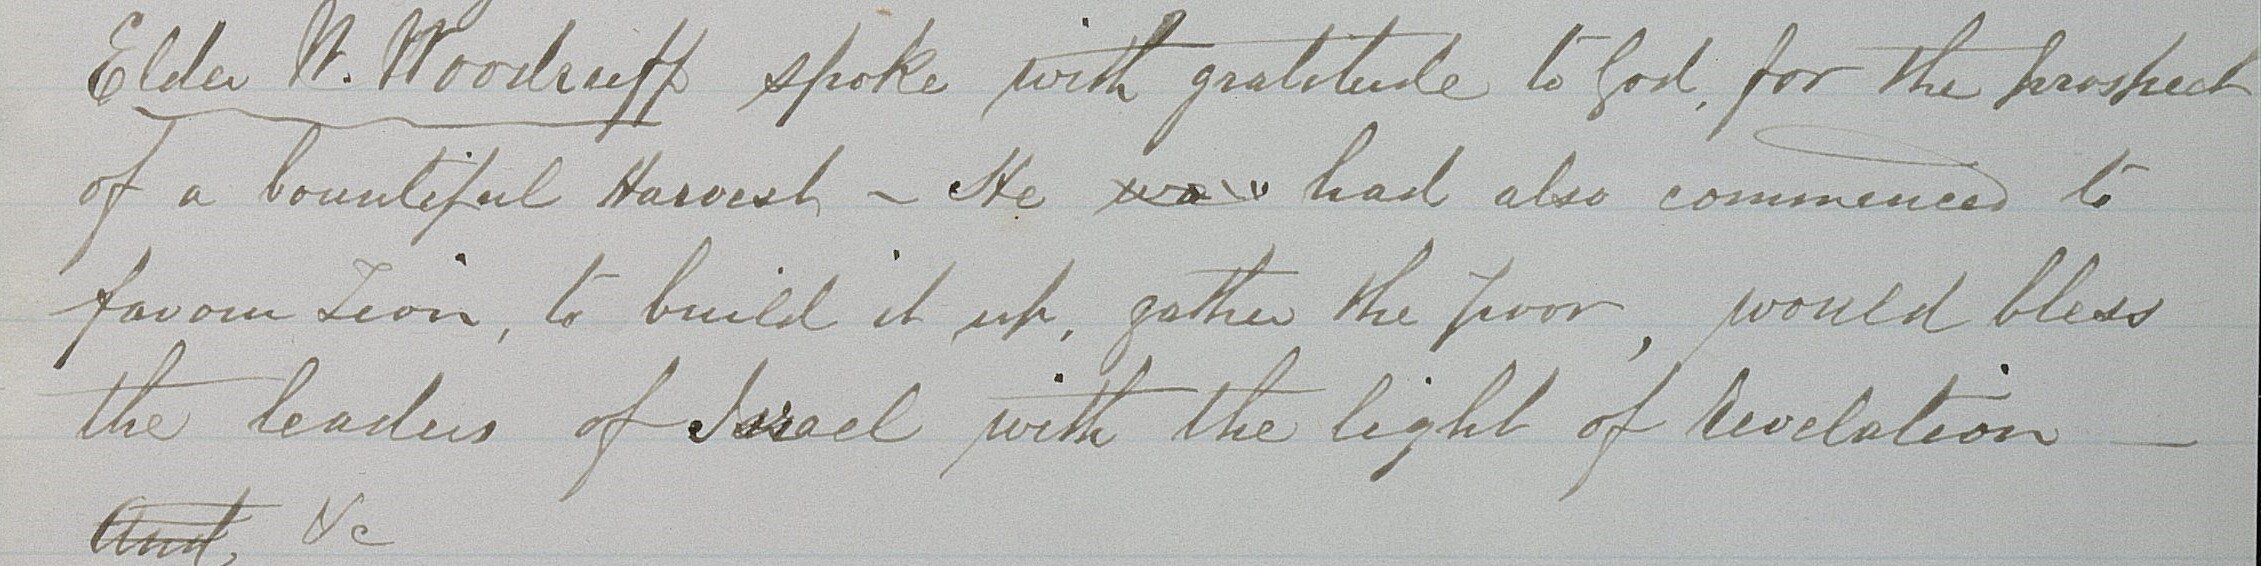 Elder W. Woodruff spoke with gratitude to God, for the prospect
of a bountiful Harvest - He was had also commenced to
favour Zion, to build it up, gather the poor, would bless
the leaders of Israel with the light of Revelation —
And, &c